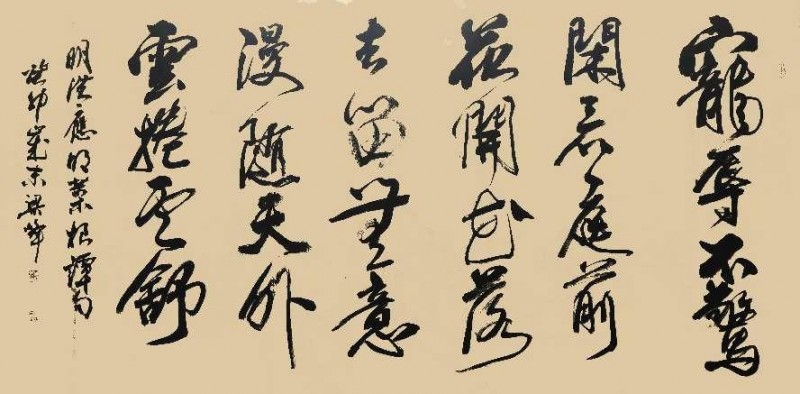 寵辱不驚
閑看庭前
花開花落
去留無意
漫隨天外
雲捲雲舒
明洪應明菜根譚句
癸卯歲末梁峰